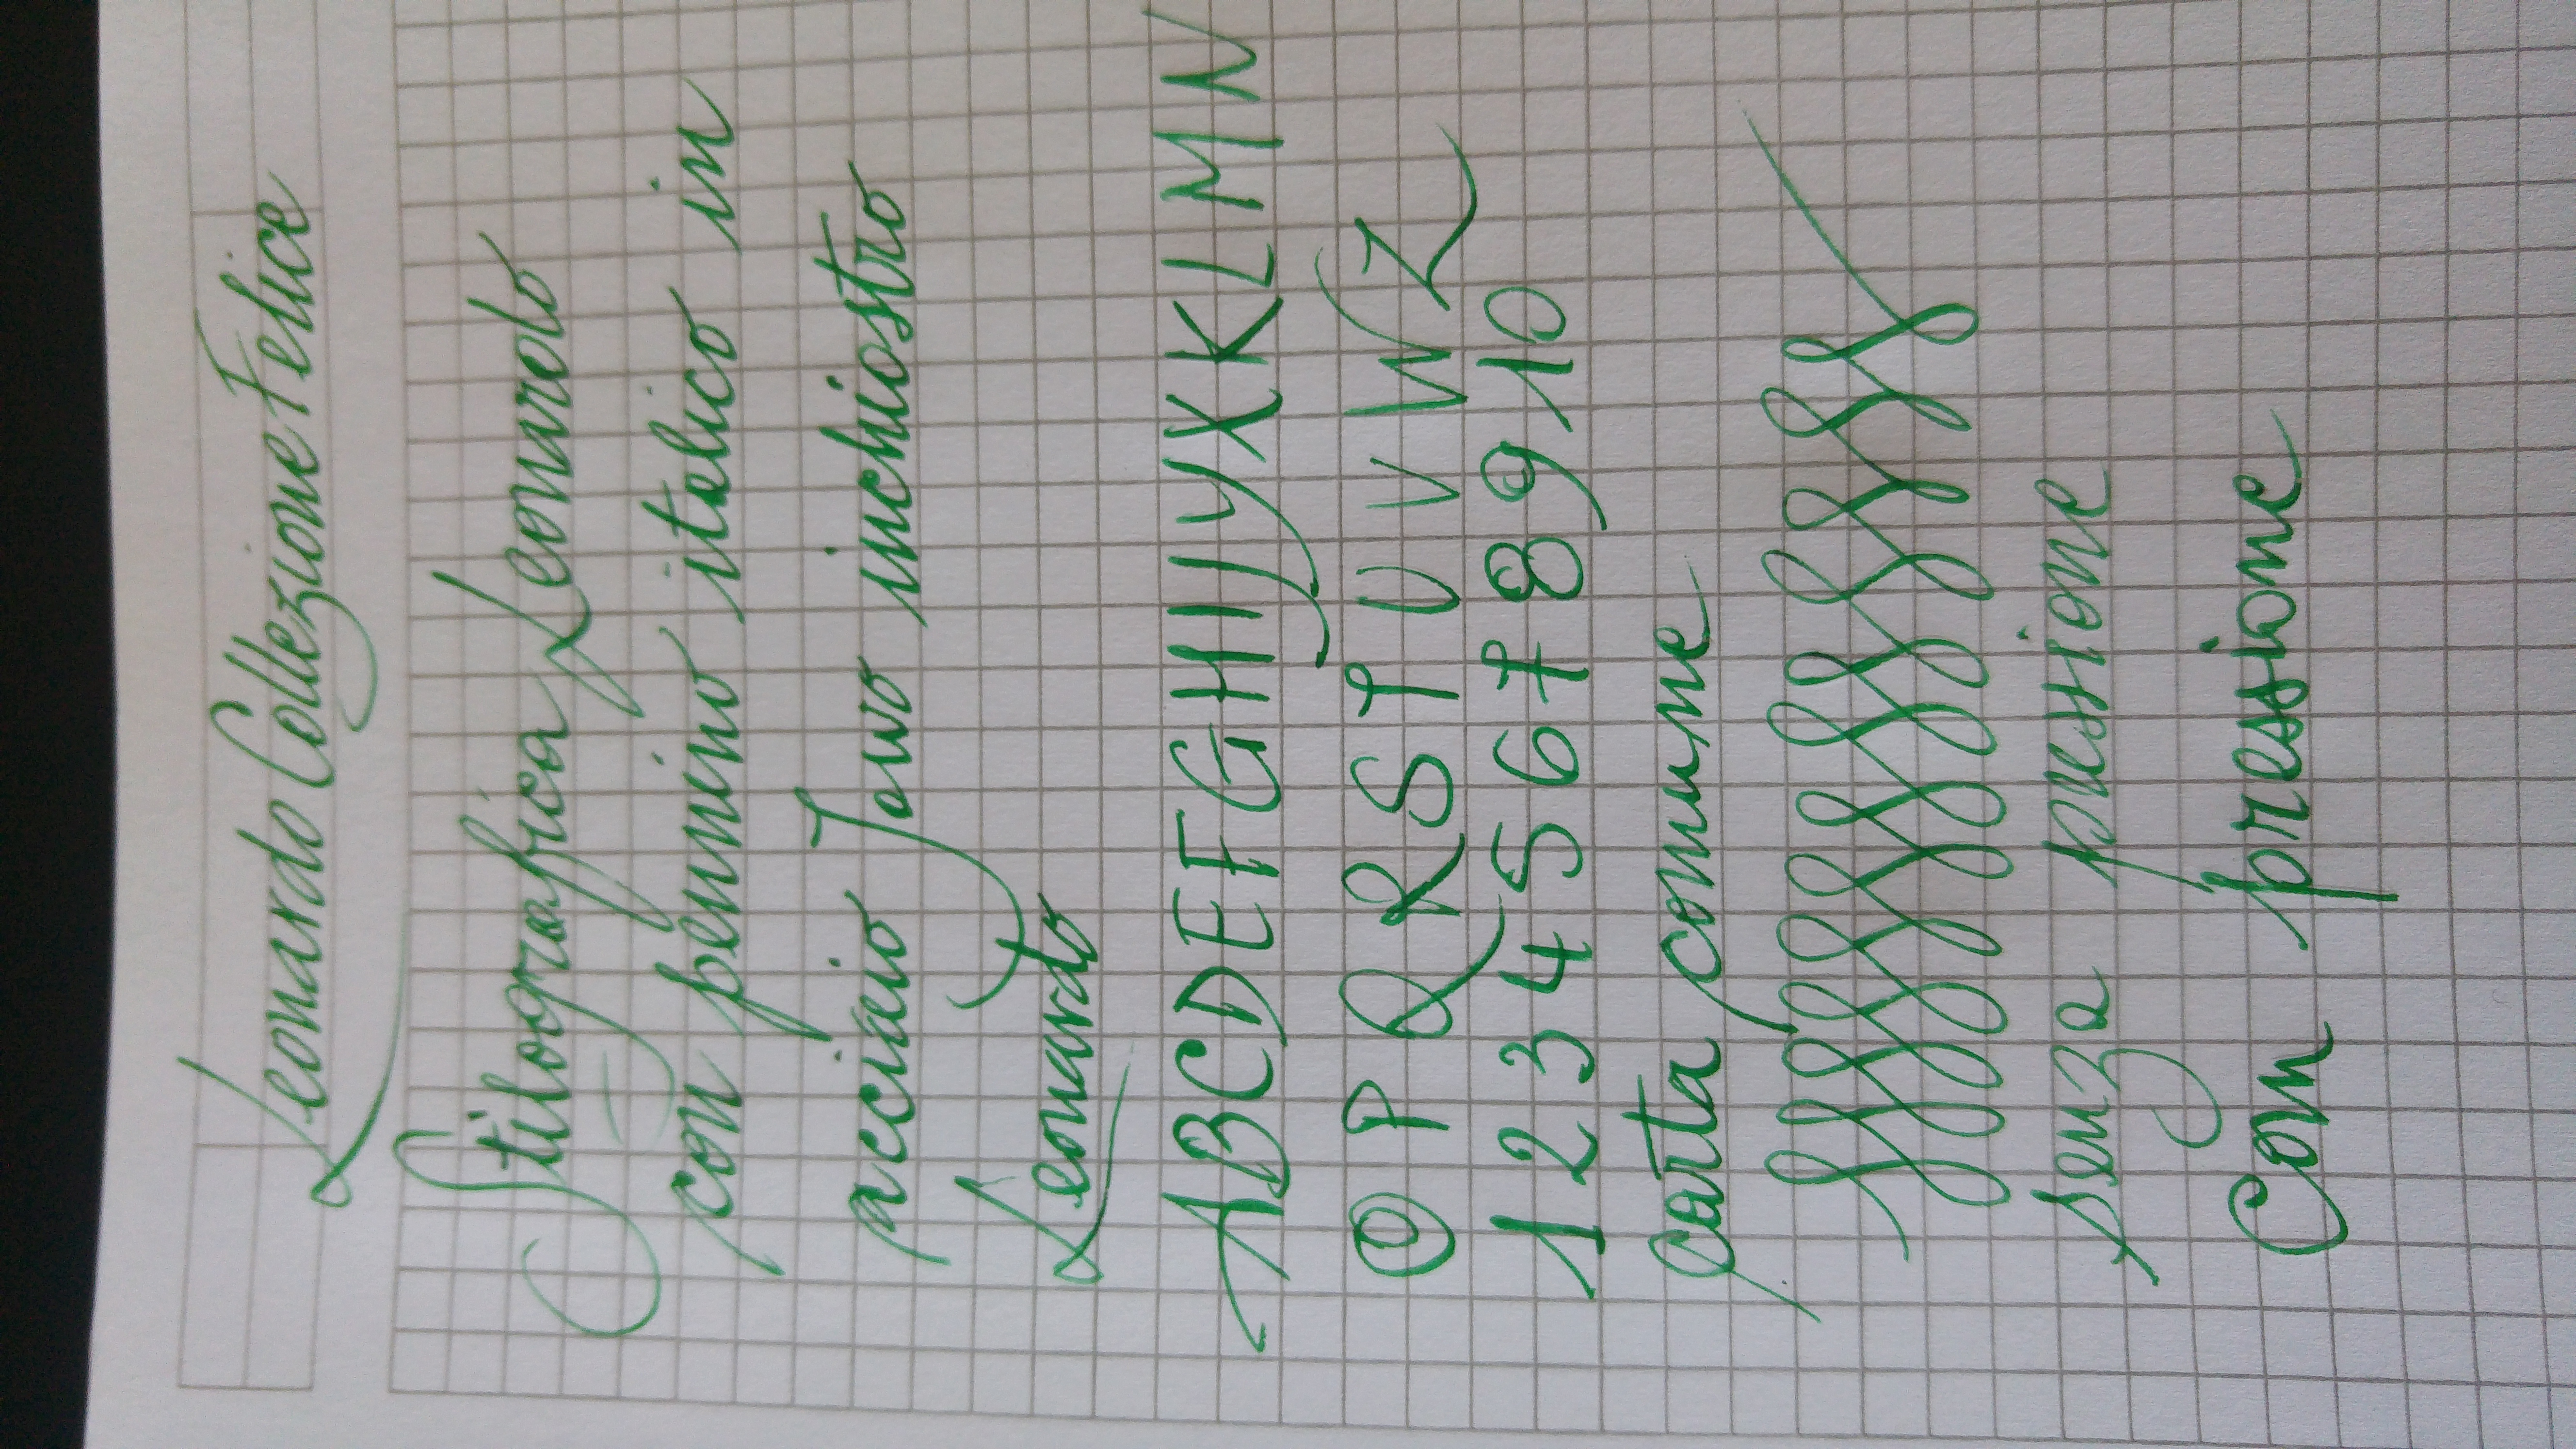 Leonardo Collezione Felice
Stilografica Leonardo
con pennino italico in
acciaio Jowo inchiostro
Leonardo
ABCDEFGHIJYXKLMN
O P R R S T U V W Z
1 2 3 4 5 6 7 8 9 10
carta comune
senza pressione
Con pressione